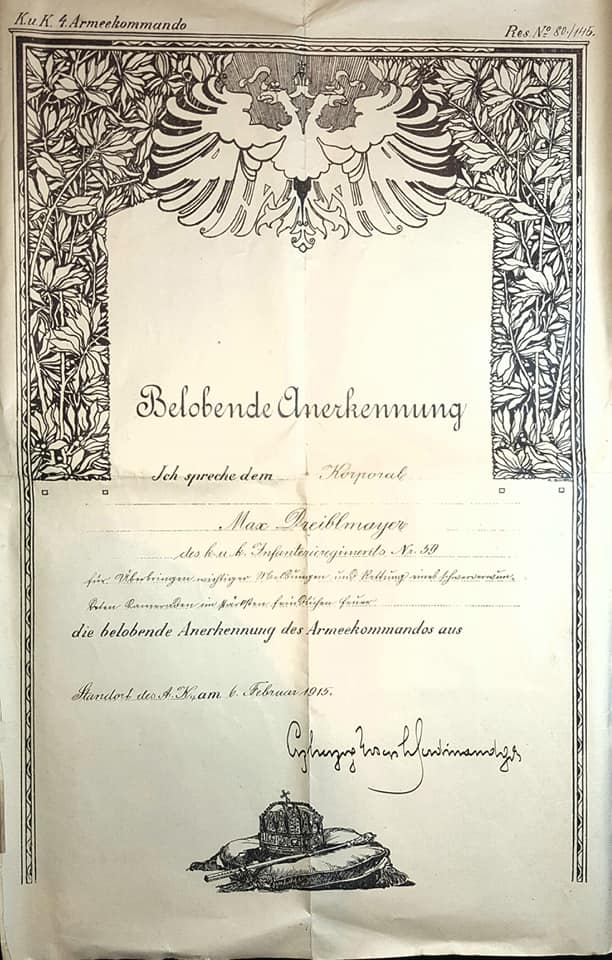 K.u.K. 4. Armeekommando
Res. № 80./145.
Belobende Anerkennung
Ich spreche dem Korporal
Max Dreiblmayer
des k.u.k. Infanterieregiments Nr. 59
für Überbringen wichtiger Meldungen und Rettung eines schwerverwun-
deten Kameraden im stärksten feindlichen Feuer
die belobende Anerkennung des Armeekommandos aus
Standort des A.K., am 6. Februar 1915.
Erzherzog Josef Ferdinand